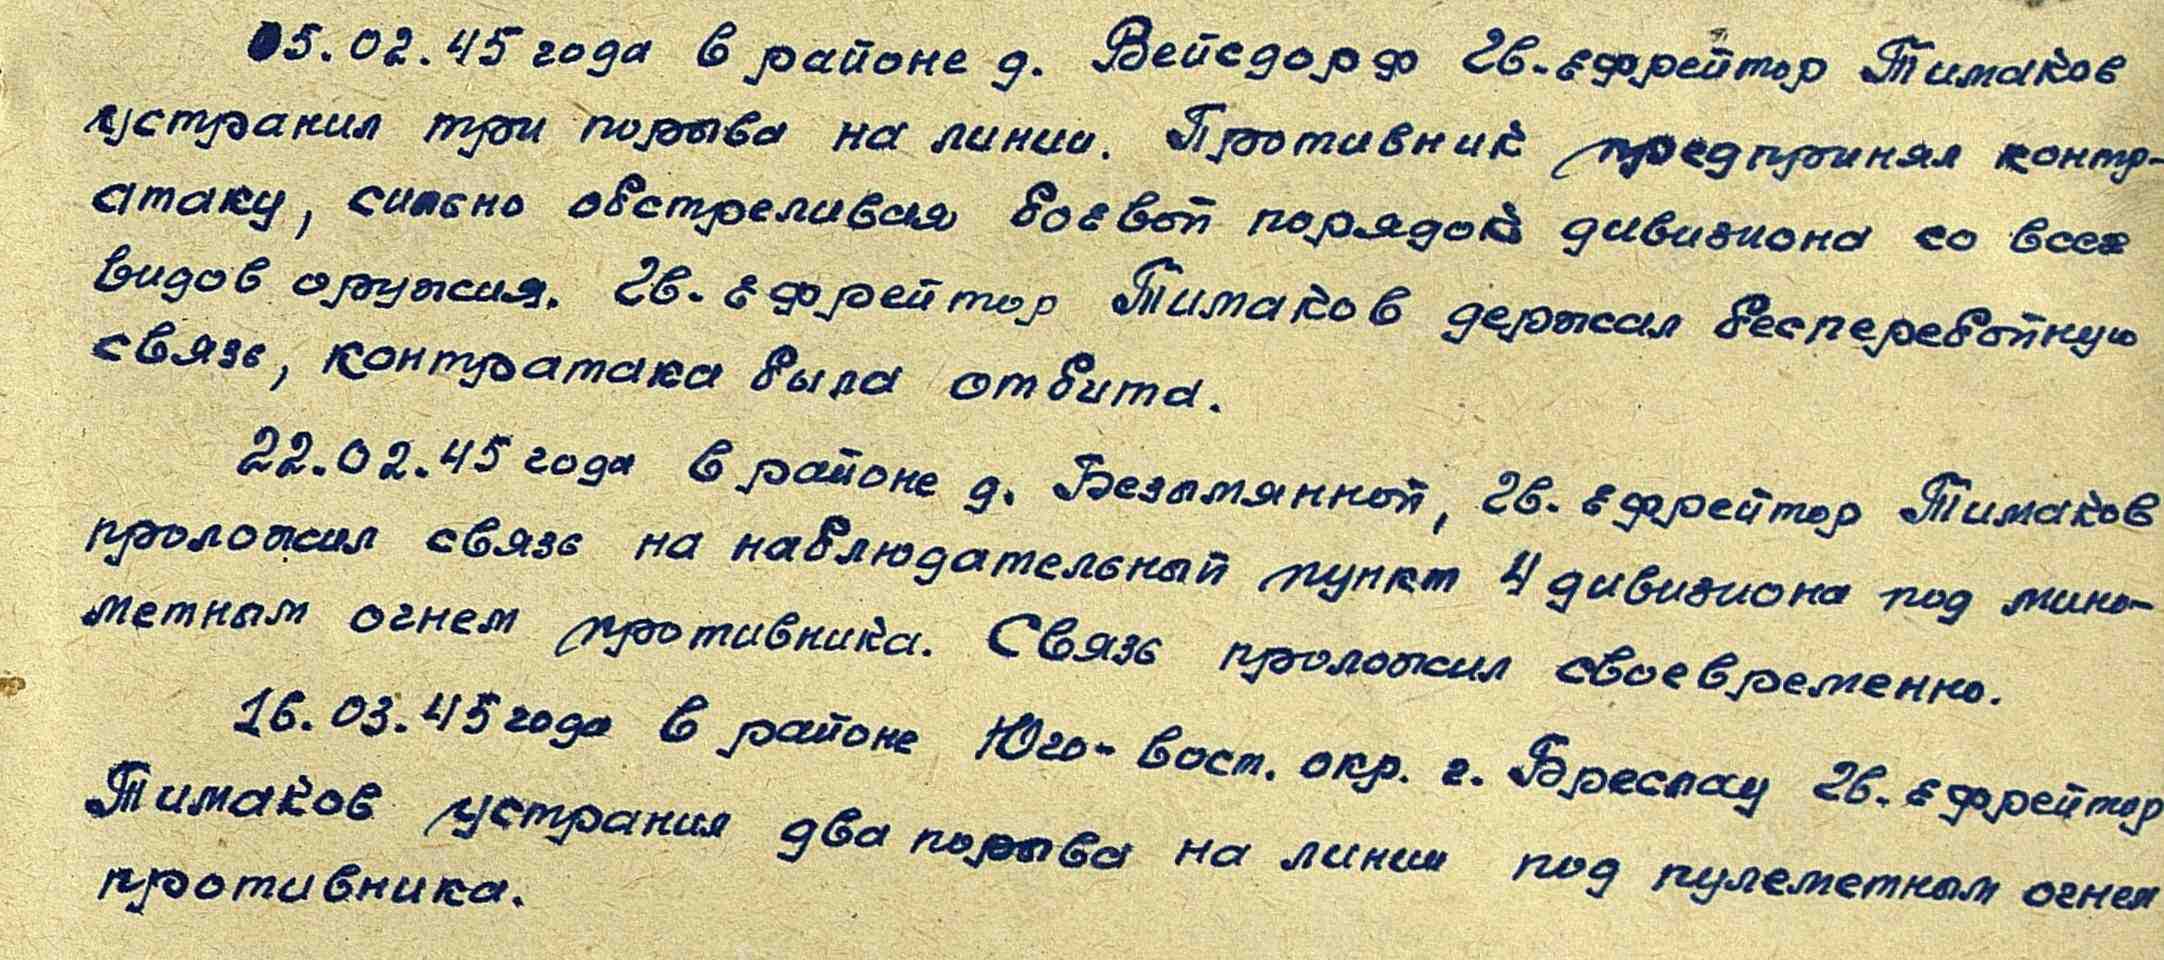 05.02.45 года в районе д. Вейсдорф Гв. ефрейтор Тимаков
устранил три порыва на линии. Противник предпринял контр-
атаку, сильно обстреливая боевой порядок дивизиона со всех
видов оружия. Гв. ефрейтор Тимаков держал бесперебойную
связь, контратака была отбита.
22.02.45 года в районе д. Безымянной, Гв. ефрейтор Тимаков
проложил связь на наблюдательный пункт 4 дивизиона под мино-
метным огнем противника. Связь проложил своевременно.
16.03.45 года в районе Юго-вост. окр. г. Бреслау Гв. ефрейтор
Тимаков устранил два порыва на линии под пулеметным огнем
противника.